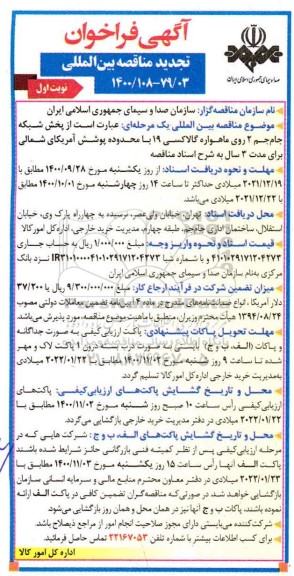 آگهی فراخوان
تجدید مناقصه بین‌المللی
۱۴۰۰/۱۰۸-۷۹/۰۳
نوبت اول
صدا و سیمای جمهوری اسلامی ایران
نام سازمان مناقصه‌گزار: سازمان صدا و سیمای جمهوری اسلامی ایران
موضوع مناقصه بین‌المللی یک مرحله‌ای: عبارت است از پخش شبکه
جام‌جم ۲ روی ماهواره گالاکسی ۱۹ با محدوده پوشش آمریکای شمالی
برای مدت ۳ سال به شرح اسناد مناقصه
مهلت و نحوه دریافت اسناد: از روز یکشنبه مورخ ۱۴۰۰/۰۹/۲۸ مطابق با
۲۰۲۱/۱۲/۱۹ میلادی حداکثر تا ساعت ۱۴ روز چهارشنبه مورخ ۱۴۰۰/۱۰/۰۱ مطابق
با ۲۰۲۱/۱۲/۲۲ می‌باشد.
محل دریافت اسناد: تهران، خیابان ولی‌عصر، نرسیده به چهارراه پارک وی، خیابان
استقلال، ساختمان اداری جام‌جم، طبقه چهارم، مدیریت خرید خارجی، اداره‌کل امور کالا
قیمت اسناد و نحوه واریز وجه: مبلغ ۱/۰۰۰/۰۰۰ ریال به حساب جاری
۴۱۰۱۰۲۹۱۷۱۲۰۴۲۷۳ و با شماره شبا IR۳۱۰۱۰۰۰۰۴۱۰۱۰۲۹۱۷۱۲۰۴۲۷۳ نزد بانک
مرکزی به‌نام سازمان صدا و سیمای جمهوری اسلامی ایران
میزان تضمین شرکت در فرآیند ارجاع کار: مبلغ ۹/۳۰۰/۰۰۰/۰۰۰ ریال یا ۳۷/۲۰۰
دلار آمریکا، انواع ضمانتنامه‌های مندرج در ماده ۴ آیین‌نامه تضمین معاملات دولتی مصوب
۱۳۹۴/۰۸/۲۴ هیأت محترم وزیران، منطبق با ماهیت موضوع مناقصه، مورد پذیرش می‌باشد.
مهلت تحویل پاکات پیشنهادی: پاکت ارزیابی کیفی به صورت جداگانه
و پاکات (الف، ب و ج) بایستی به صورت دربسته درون ۱ پاکت لاک و مهر
شده تا ساعت ۹ روز شنبه مورخ ۱۴۰۰/۱۱/۰۲ مطابق با ۲۰۲۲/۰۱/۲۲ میلادی
به مدیریت خرید خارجی اداره کل امور کالا تسلیم گردد.
محل و تاریخ گشایش پاکت‌های ارزیابی‌کیفی: پاکت‌های
ارزیابی کیفی رأس ساعت ۱۰ صبح روز شنبه مورخ ۱۴۰۰/۱۱/۰۲ مطابق با
۲۰۲۲/۰۱/۲۲ میلادی در دفتر مدیریت خرید خارجی بازگشایی می‌گردد.
محل و تاریخ گشایش پاکت‌های الف، ب و ج: شرکت هایی که در
مرحله ارزیابی کیفی پس از نظر کمیته فنی بازرگانی حائز شرایط شده باشند
پاکت الف آنها رأس ساعت ۱۵ روز یکشنبه مورخ ۱۴۰۰/۱۱/۰۳ مطابق با
۲۰۲۲/۰۱/۲۳ میلادی در دفتر معاون محترم منابع مالی و سرمایه انسانی سازمان
بازگشایی خواهد شد. در صورتی‌که مناقصه‌گران تضمین کافی در پاکت الف ارائه
نموده باشند، پاکات ب و ج آنها نیز در همان محل و همان روز بازگشایی می‌شود.
شرکت‌کننده می‌بایستی دارای مجوز صلاحیت انجام امور از مراجع ذیصلاح باشد.
برای کسب اطلاعات بیشتر با شماره تلفن ۲۲۱۶۷۰۵۳ تماس حاصل فرمائید.
اداره کل امور کالا